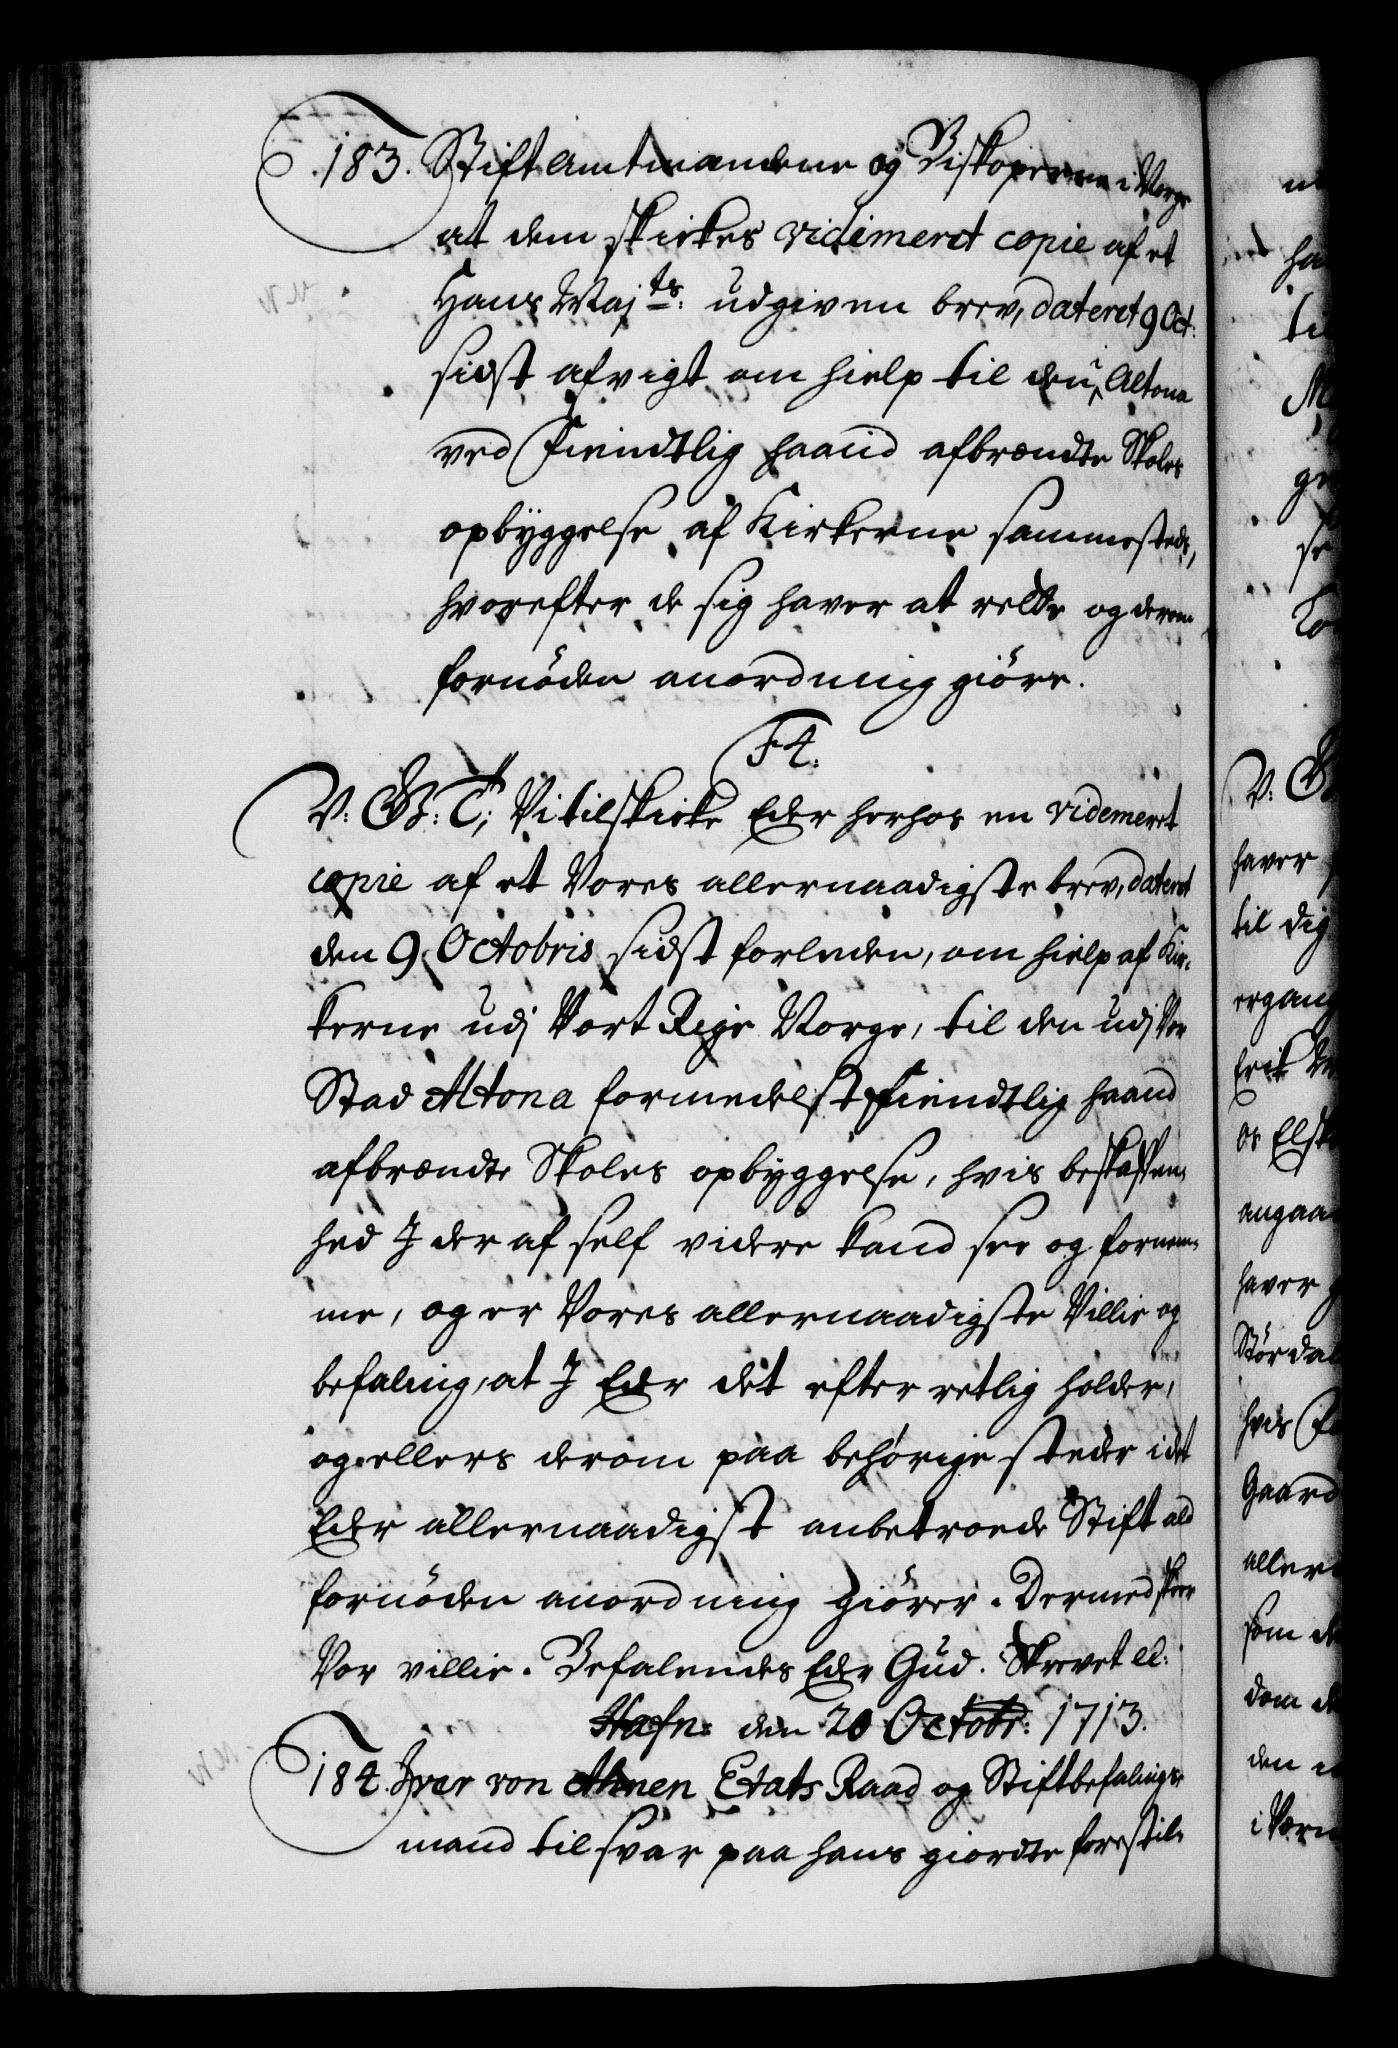 183. Stiftamtmandene og Biskoperne i Norge
at dem skickes vidimeret copie af et
Hans Maj:ts udgiven brev, dateret 9 Oct:
sidst afvigt om hielp til den i Altona
ved Fiendtlig haand afbrændte Skoles
opbyggelse af Kirkerne sammesteds,
hvorefter de sig haver at rette og derom
fornöden anordning giöre.
F4.
V: G: T; Vi tilskicke Eder herhos en videmeret
copie af et Vores allernaadigste brev, dateret
den 9 Octobris sidst forleden, om hielp af Kir-
kerne udj Vort Rige Norge, til den udj Vor
Stad Altona formedelst Fiendtlig haand
afbrændte Skoles opbyggelse, hvis beskaffen-
hed J der af self videre kand see og fornem-
me, og er Vores allernaadigste Villie og
befaling, at J Eder det efterretlig holder,
og ellers derom paa behørige steder i det
Eder allernaadigst anbetroede Stift ald
fornöden anordning giörer. Dermed skeer
Vor villie. Befalendes Eder Gud. Skrevet etc:
Hafn: den 20 Octobr: 1713.
184. Iver von Ahnen Etats Raad og Stiftbefalings-
mand til svar paa hans giordte forestil-
V: G
haver
til dig
ergang
Erik
os Elsk
angaa
haver
Stördal
hvis
Gaard
aller
som
dem
den
i Værn